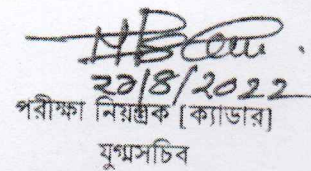 20/8/2022
পরীক্ষা নিয়ন্ত্রক [ক্যাডার]
যুগ্মসচিব